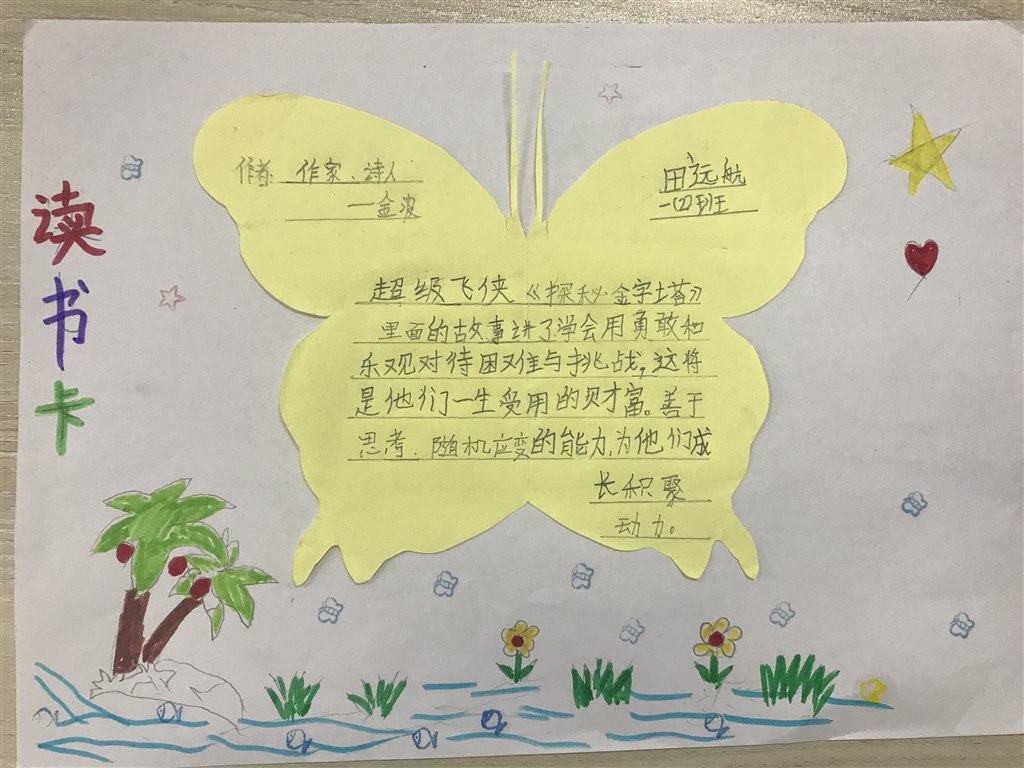 读书卡
作者 作家、诗人
—金波
田远航
一(2)班
超级飞侠《探秘金字塔》
里面的故事讲了学会用勇敢和
乐观对待困难与挑战,这将
是他们一生受用的财富。善于
思考、随机应变的能力,为他们成
长积聚
动力。